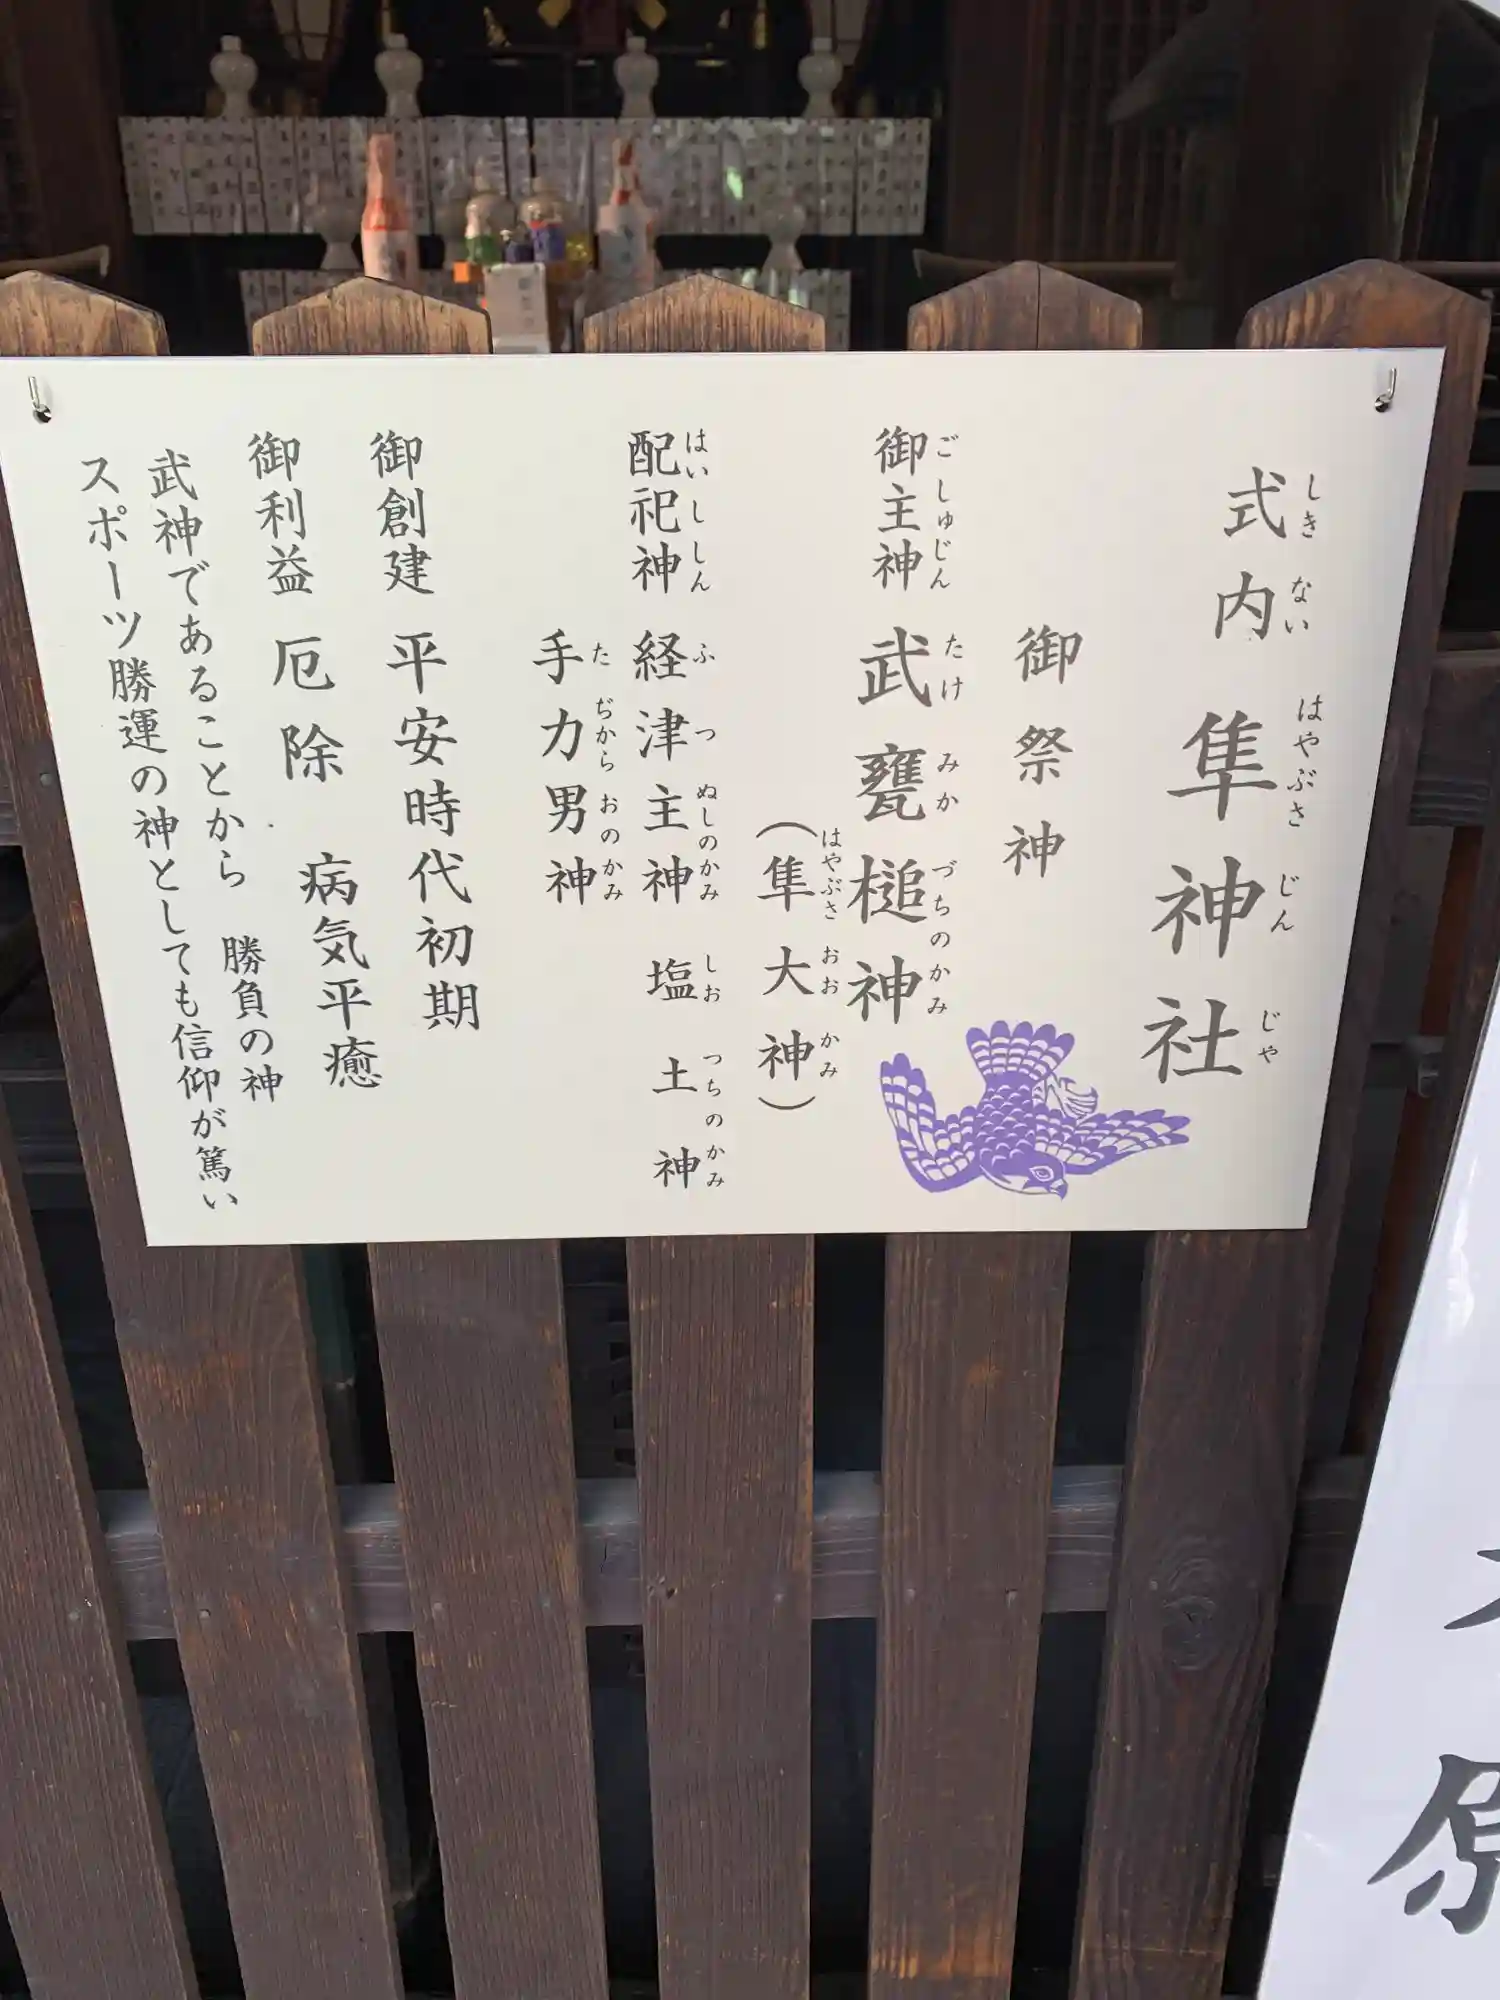 式内 隼神社
しきない はやぶさじんじゃ
御祭神
御主神 武甕槌神
ごしゅじん たけみかづちのかみ
(隼大神)
はやぶさおおかみ
配祀神 経津主神 塩土神
はいししん ふつぬしのかみ しおつちのかみ
手力男神
たぢからおのかみ
御創建 平安時代初期
御利益 厄除 病気平癒
武神であることから 勝負の神
スポーツ勝運の神としても信仰が篤い
原